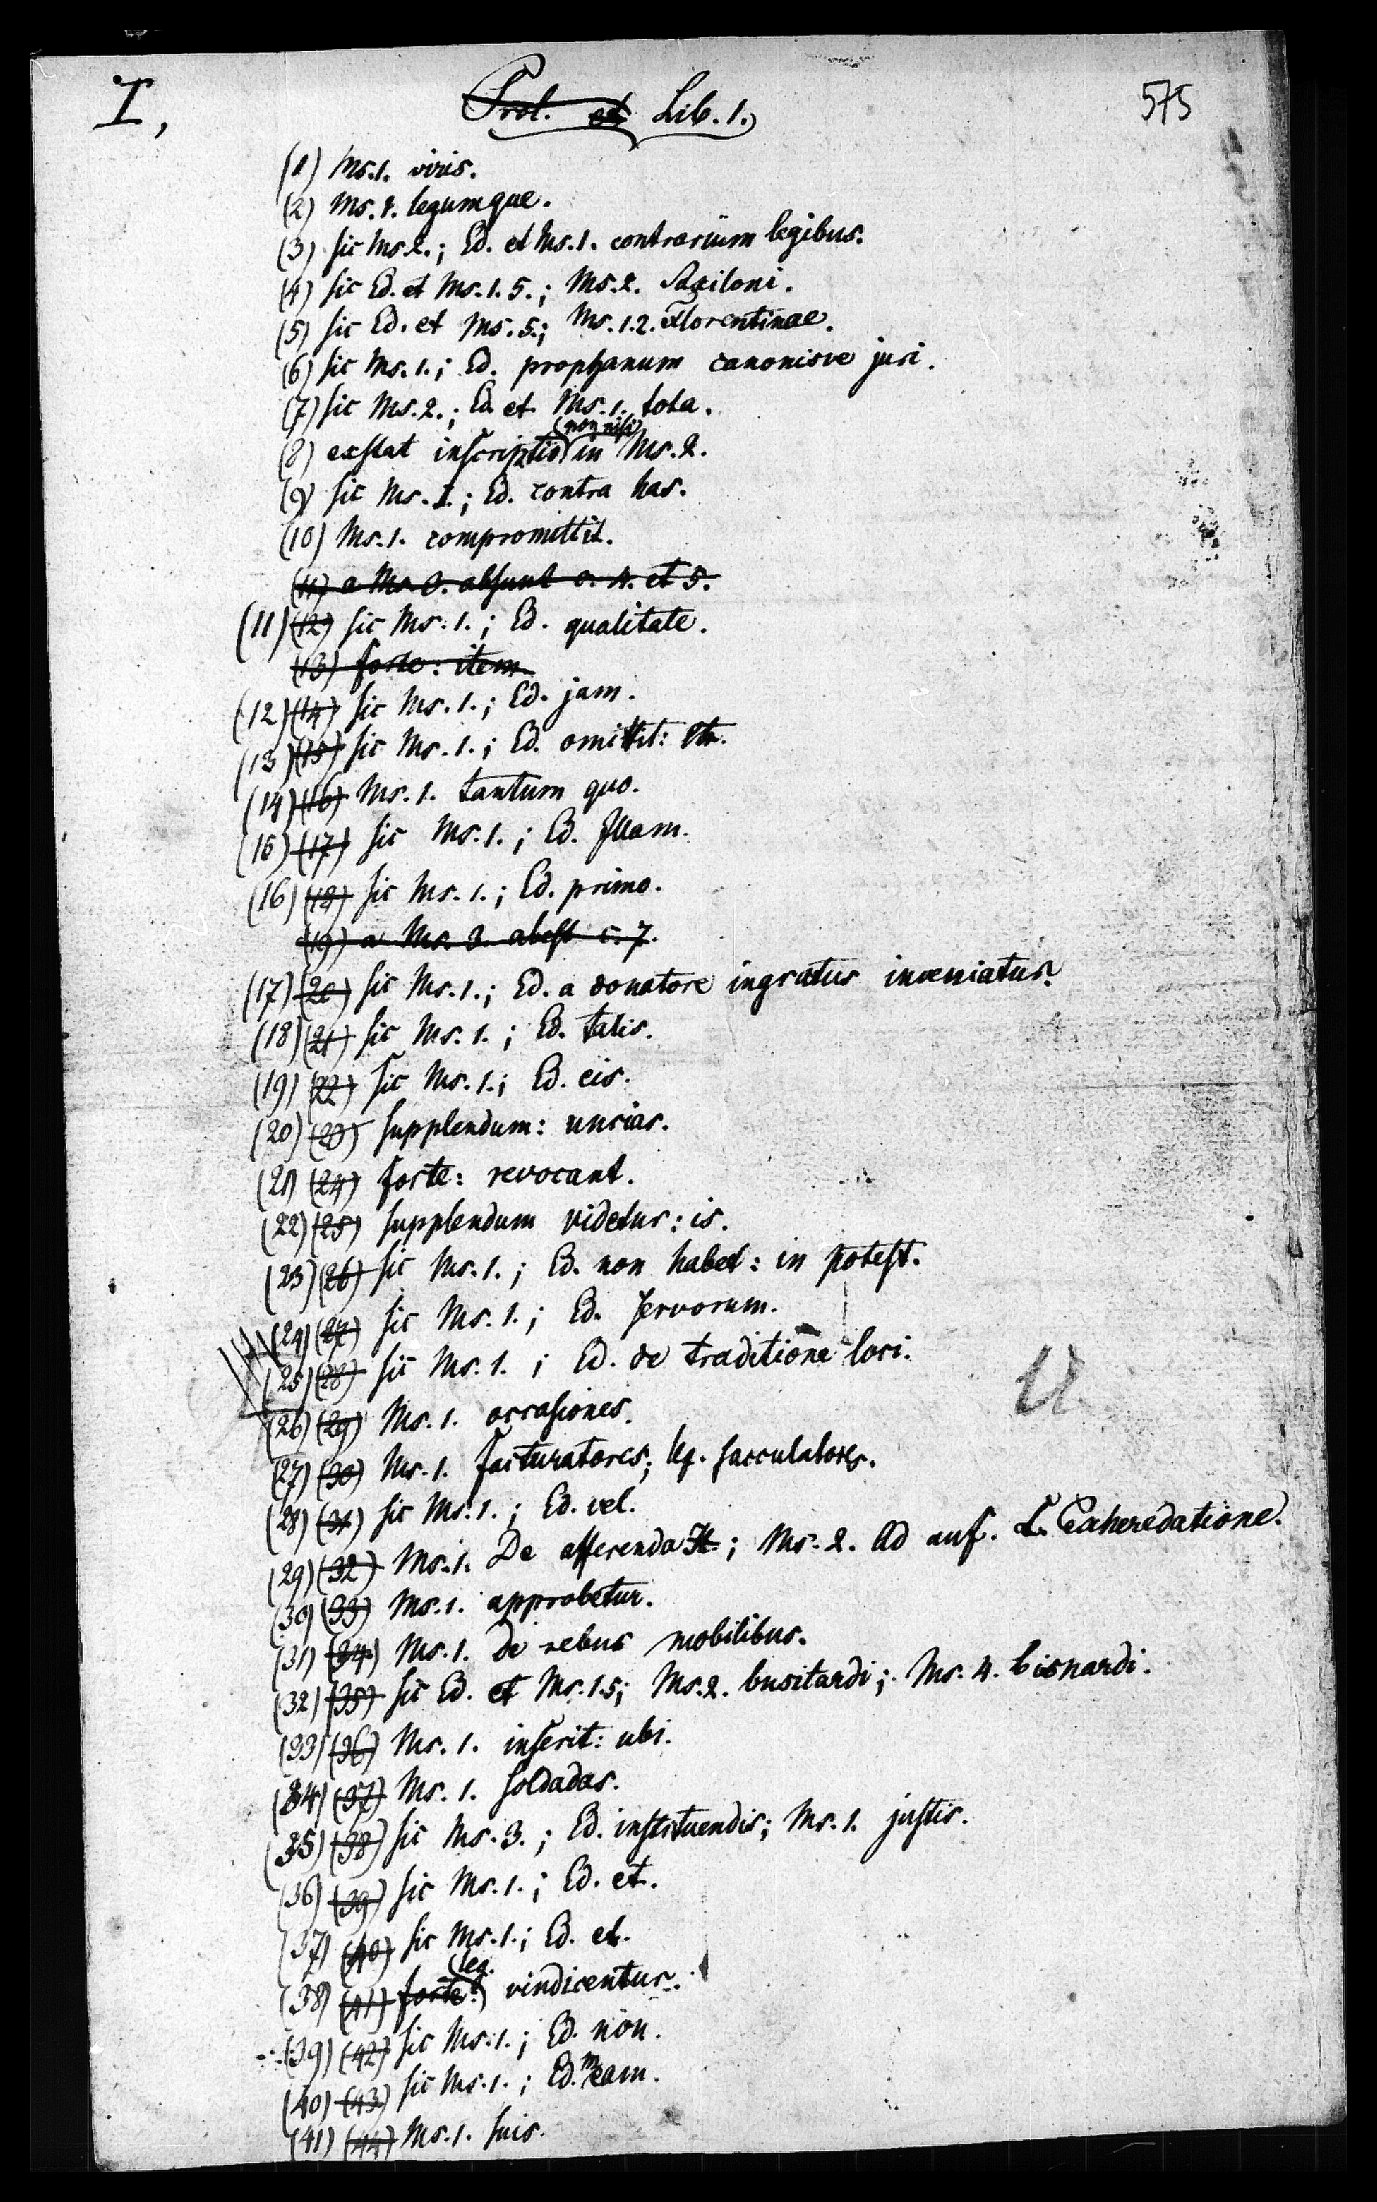 I,
Prol. et Lib. 1.
575
(1) Ms. 1. viris.
(2) Ms. 1. legumque.
(3) sic Ms. 2.; Ed. et Ms. 1. contrarium legibus.
(4) sic Ed. et Ms. 1. 5.; Ms. 2.
(5) sic Ed. et Ms. 5.; Ms. 1. 2. Florentinae.
(6) sic Ms. 1.; Ed. prophanum canonisve juri.
(7) sic Ms. 2.; Ed. et Ms. 1. tota.
(8) exstat inscriptio (non nisi) in Ms. 2.
(9) sic Ms. 1.; Ed. contra has.
(10) Ms. 1. compromittit.
(11) a Ms. 3. absunt c. 4. et 5.
(11) (12) sic Ms. 1.; Ed. qualitate.
(13) forte: item
(12) (14) sic Ms. 1.; Ed. jam.
(13) (15) sic Ms. 1.; Ed. omittit:
(14) (16) Ms. 1. tantum quo.
(15) (17) sic Ms. 1.; Ed. Illam.
(16) (18) sic Ms. 1.; Ed. primo.
(19) a Ms. 3. abest c. 7.
(17) (20) sic Ms. 1.; Ed. a donatore ingratus inveniatur.
(18) (21) sic Ms. 1.; Ed. talis.
(19) (22) sic Ms. 1.; Ed. eis.
(20) (23) supplendum: uncias.
(21) (24) forte: revocant.
(22) (25) supplendum videtur: is.
(23) (26) sic Ms. 1.; Ed. non habet: in potest.
(24) (27) sic Ms. 1.; Ed. servorum.
(25) (28) sic Ms. 1.; Ed. de traditione loci.
(26) (29) Ms. 1. occasiones.
(27) (30) Ms. 1. facturatores; leg. saccularores.
(28) (31) sic Ms. 1.; Ed. vel.
(29) (32) Ms. 1. De afferenda H.; Ms. 2. Ad auf. L. Exheredatione.
(30) (33) Ms. 1. approbetur.
(31) (34) Ms. 1. De rebus mobilibus.
(32) (35) sic Ed. et Ms. 1. 5; Ms. 2. busitardi; Ms. 4. bisnardi.
(33) (36) Ms. 1. inserit: ubi.
(34) (37) Ms. 1. soldadas.
(35) (38) sic Ms. 3.; Ed. instituendis; Ms. 1. justis.
(36) (39) sic Ms. 1.; Ed. et.
(37) (40) sic Ms. 1.; Ed. et.
(38) (41) forte: (leg.) vindicentur.
(39) (42) sic Ms. 1.; Ed. non.
(40) (43) sic Ms. 1.; Ed. meam.
(41) (44) Ms. 1. suis.